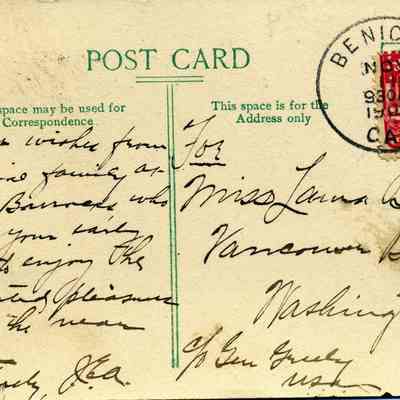 POST CARD
space may be used for
Correspondence
wishes from
family at
Barracks who
your early
enjoy the
pleasures
the near
J.E.A.
This space is for the
Address only
For
Miss Laura
Vancouver B
Washing
c/o Gen Greely
USA
BENIC
NO
930
19
CA